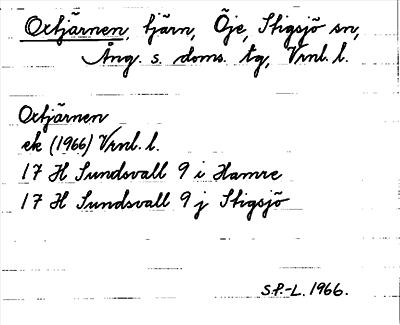 Oxtjärnen, tjärn, Öje, Stigsjö sn,
Ång. s. doms. tg, Vrnl. l.
Oxtjärnen
ek (1966) Vrnl. l.
17 H Sundsvall 9 i Hamre
17 H Sundsvall 9 j Stigsjö
S.P.-L. 1966.